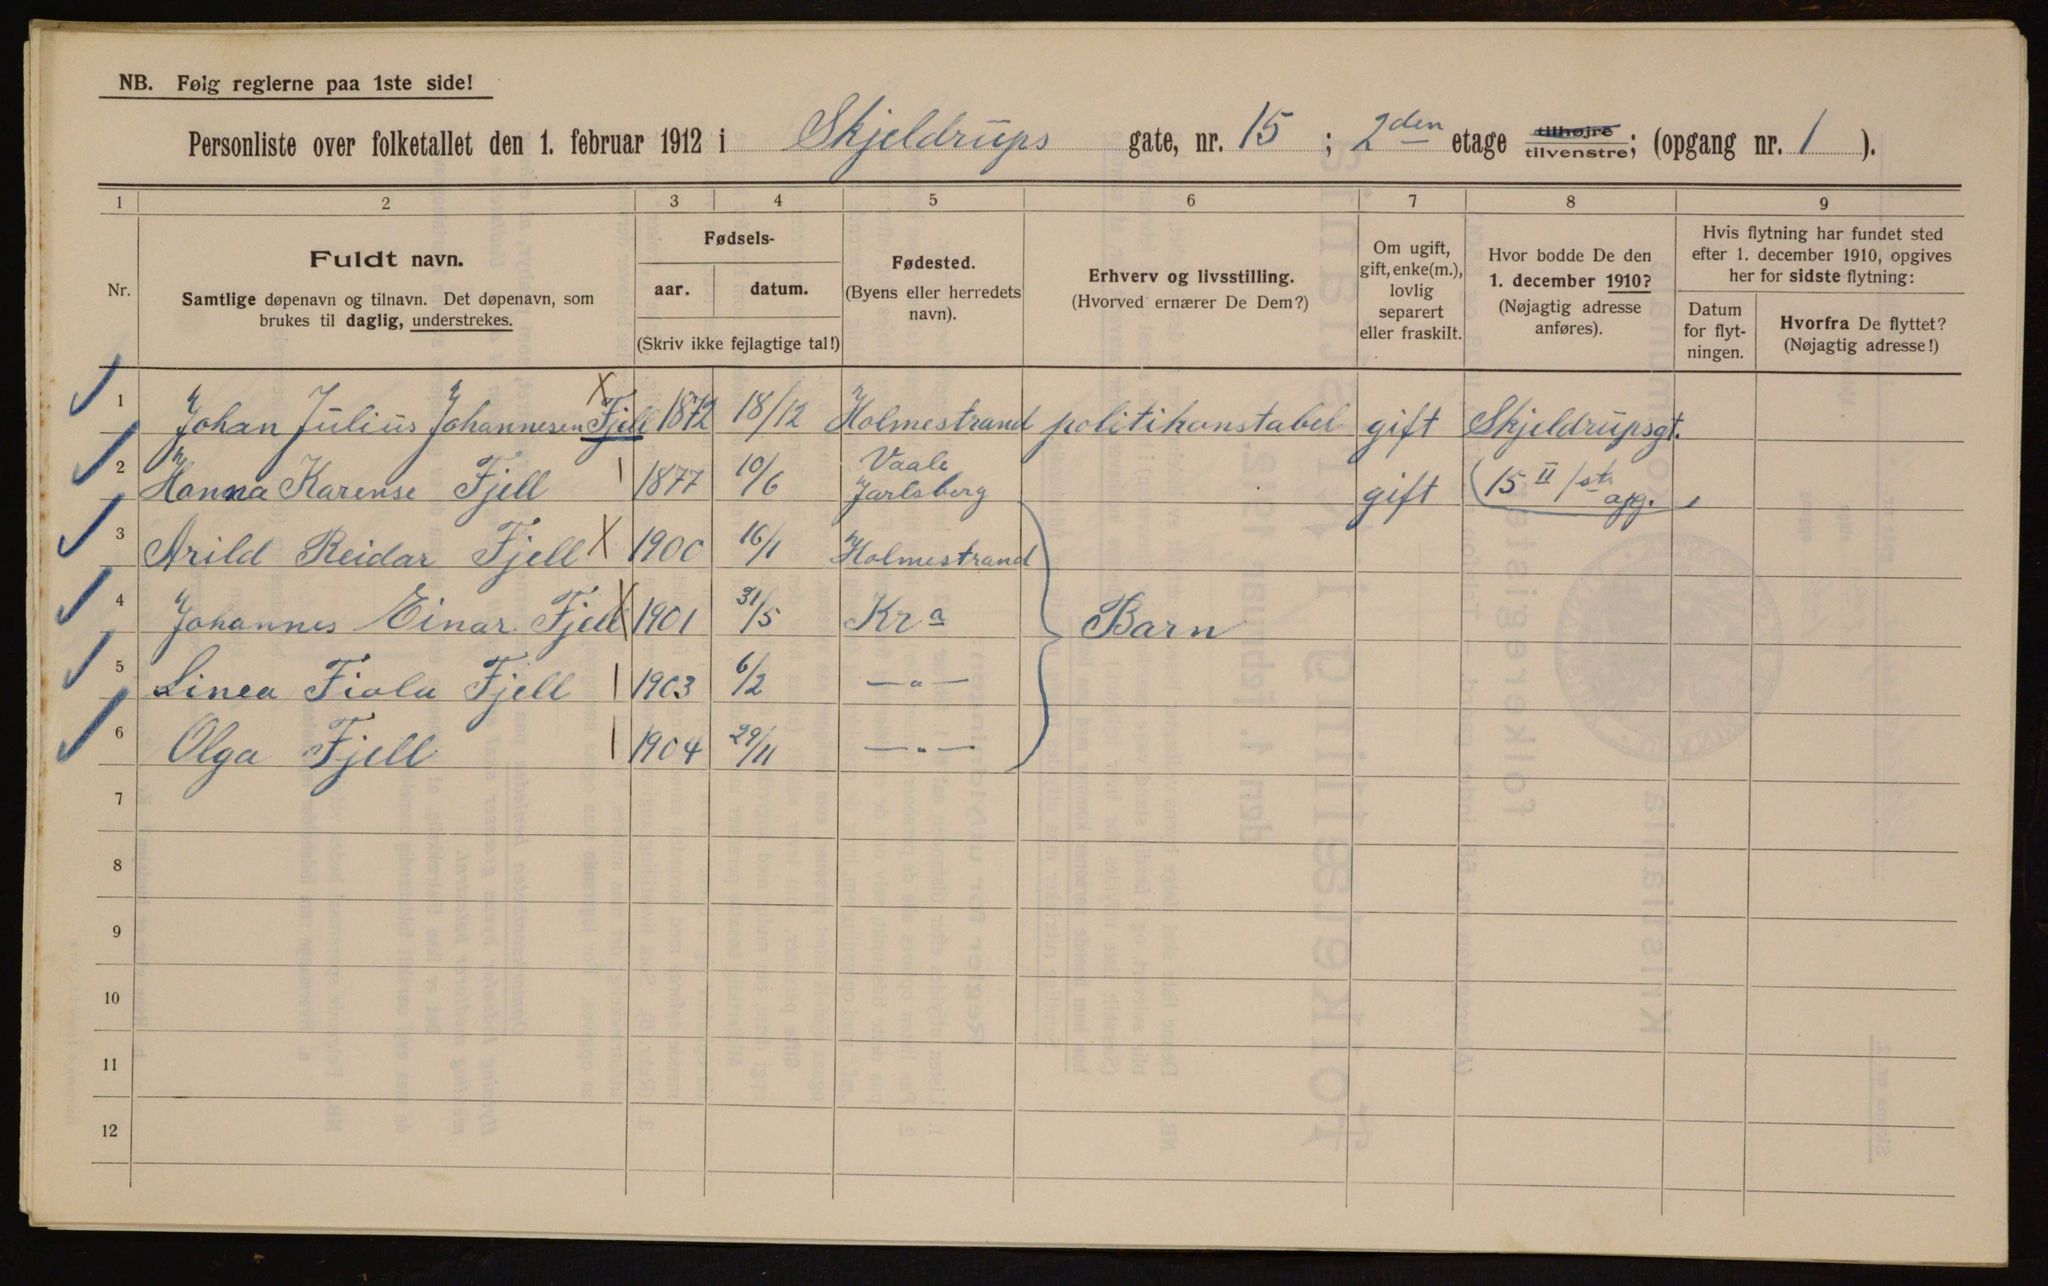 NB. Følg reglerne paa 1ste side!
Personliste over folketallet den 1. februar 1912 i Skjeldrups gate, nr. 15; 2den etage tilhøjre tilvenstre; (opgang nr. 1).
1 2 3 4 5 6 7 8 9
Nr.
Fuldt navn.
Samtlige døpenavn og tilnavn. Det døpenavn, som
brukes til daglig, understrekes.
Fødsels-
aar. datum.
(Skriv ikke fejlagtige tal!)
Fødested.
(Byens eller herredets
navn).
Erhverv og livsstilling.
(Hvorved ernærer De Dem?)
Om ugift,
gift, enke(m.),
lovlig
separert
eller fraskilt.
Hvor bodde De den
1. december 1910?
(Nøjagtig adresse
anføres).
Hvis flytning har fundet sted
efter 1. december 1910, opgives
her for sidste flytning:
Datum
for flyt-
ningen.
Hvorfra De flyttet?
(Nøjagtig adresse!)
1 Johan Julius Johannesen Fjell X 1872 18/12 Holmestrand politikonstabel gift Skjeldrupsgt.
2 Hanna Karense Fjell 1 1877 10/6 Vaale Jarlsberg gift 15 II 1st opg.
3 Arild Reidar Fjell X 1900 16/1 Holmestrand
4 Johannes Einar Fjell X 1901 31/5 Kra Barn
5 Linea Fiola Fjell 1 1903 6/2 —"—
6 Olga Fjell 1 1904 29/11 —"—
7
8
9
10
11
12